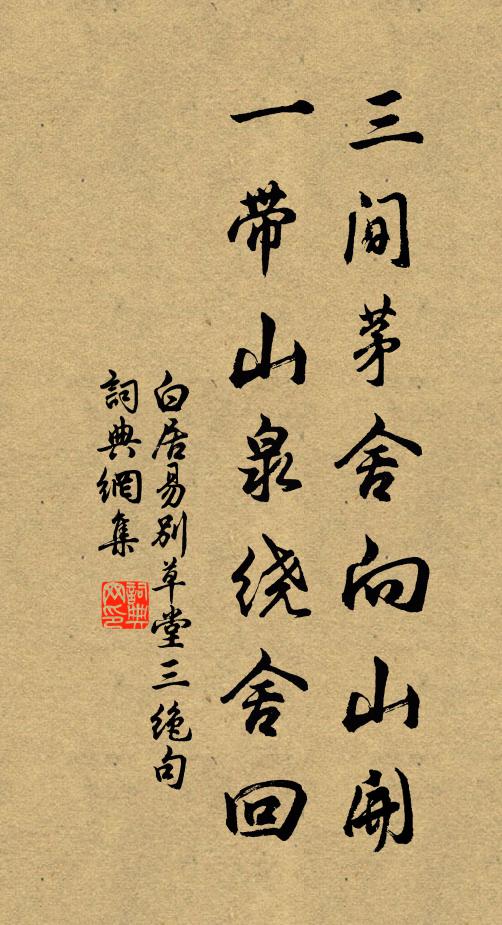 三间茅舍向山开
一带山泉绕舍回
白居易别草堂三绝句
詞典網集
詞典
网印